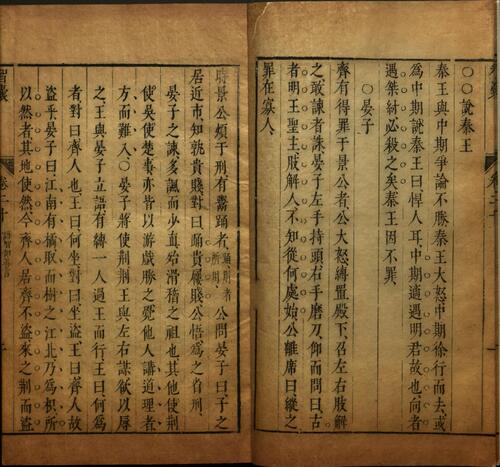 ○○說秦王
秦王與中期爭論不勝秦王大怒中期徐行而去或
為中期說秦王曰悍人耳中期適遇明君故也向者
遇桀紂必殺之矣秦王因不罪
○晏子
齊有得罪于景公者公大怒縛置殿下召左右肢解
之敢諫者誅晏子左手持頭右手磨刀仰而問曰古
者明王聖主肢解人不知從何處始公離席曰縱之
罪在寡人
時景公煩于刑有鬻踊者踊刖者所用公問晏子曰子之
居近市知孰貴賤對曰踊貴屨賤公悟為之省刑
晏子之諫多諷而少直殆滑稽之祖也其他使荊
使吳使楚事亦皆以游戲勝之覺他人講道理者
方而難入○晏子將使荊荊王與左右謀欲以辱
之王與晏子立語有縛一人過王而行王曰何為
者對曰齊人也王曰何坐對曰坐盜王曰齊人故
盜乎晏子曰江南有橘取而樹之江北乃為枳所
以然者其地使然今齊人居齊不盜來之荊而盜
智囊
卷二十